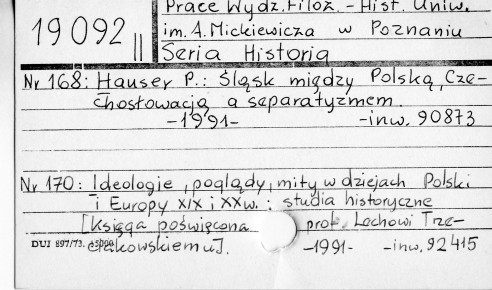 Prace Wydz. Filoz. - Hist. Uniw.
19092 II im. A. Mickiewicza w Poznaniu
Seria Historia
Nr 168: Hauser P.: Śląsk między Polską, Cze-
chosłowacją a separatyzmem.
-1991- -inw. 90873
Nr 170: Ideologie, poglądy, mity w dziejach Polski
i Europy XIX i XX w. : studia historyczne
[Księga poświęcona prof. Lechowi Trze-
DUJ 897/73. 15000 ciakowskiemu]. -1991- -inw. 92415